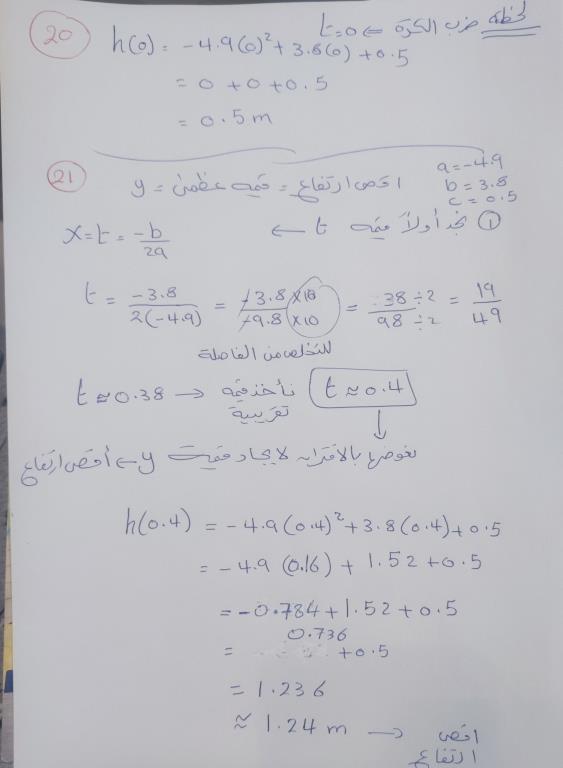 لحظة ضرب الكرة ← t=0
20
h(0) = -4.9(0)² + 3.8(0) + 0.5
= 0 + 0 + 0.5
= 0.5 m
21
اقصى ارتفاع = قيمه عظمى = y
a = -4.9
b = 3.8
c = 0.5
① نجد أولاً قيمه t ←
x = t = -b/2a
t = -3.8/2(-4.9) = -3.8×10/-9.8×10 = 38÷2/98÷2 = 19/49
للتخلص من الفاصلة
t ≈ 0.38 → نأخذ قيمه تقريبية t ≈ 0.4
نعوضها بالاقتران لايجاد قيمت y ← أقصى ارتفاع
h(0.4) = -4.9(0.4)² + 3.8(0.4) + 0.5
= -4.9 (0.16) + 1.52 + 0.5
= -0.784 + 1.52 + 0.5
= 0.736 + 0.5
= 1.236
≈ 1.24 m → اقصى ارتفاع